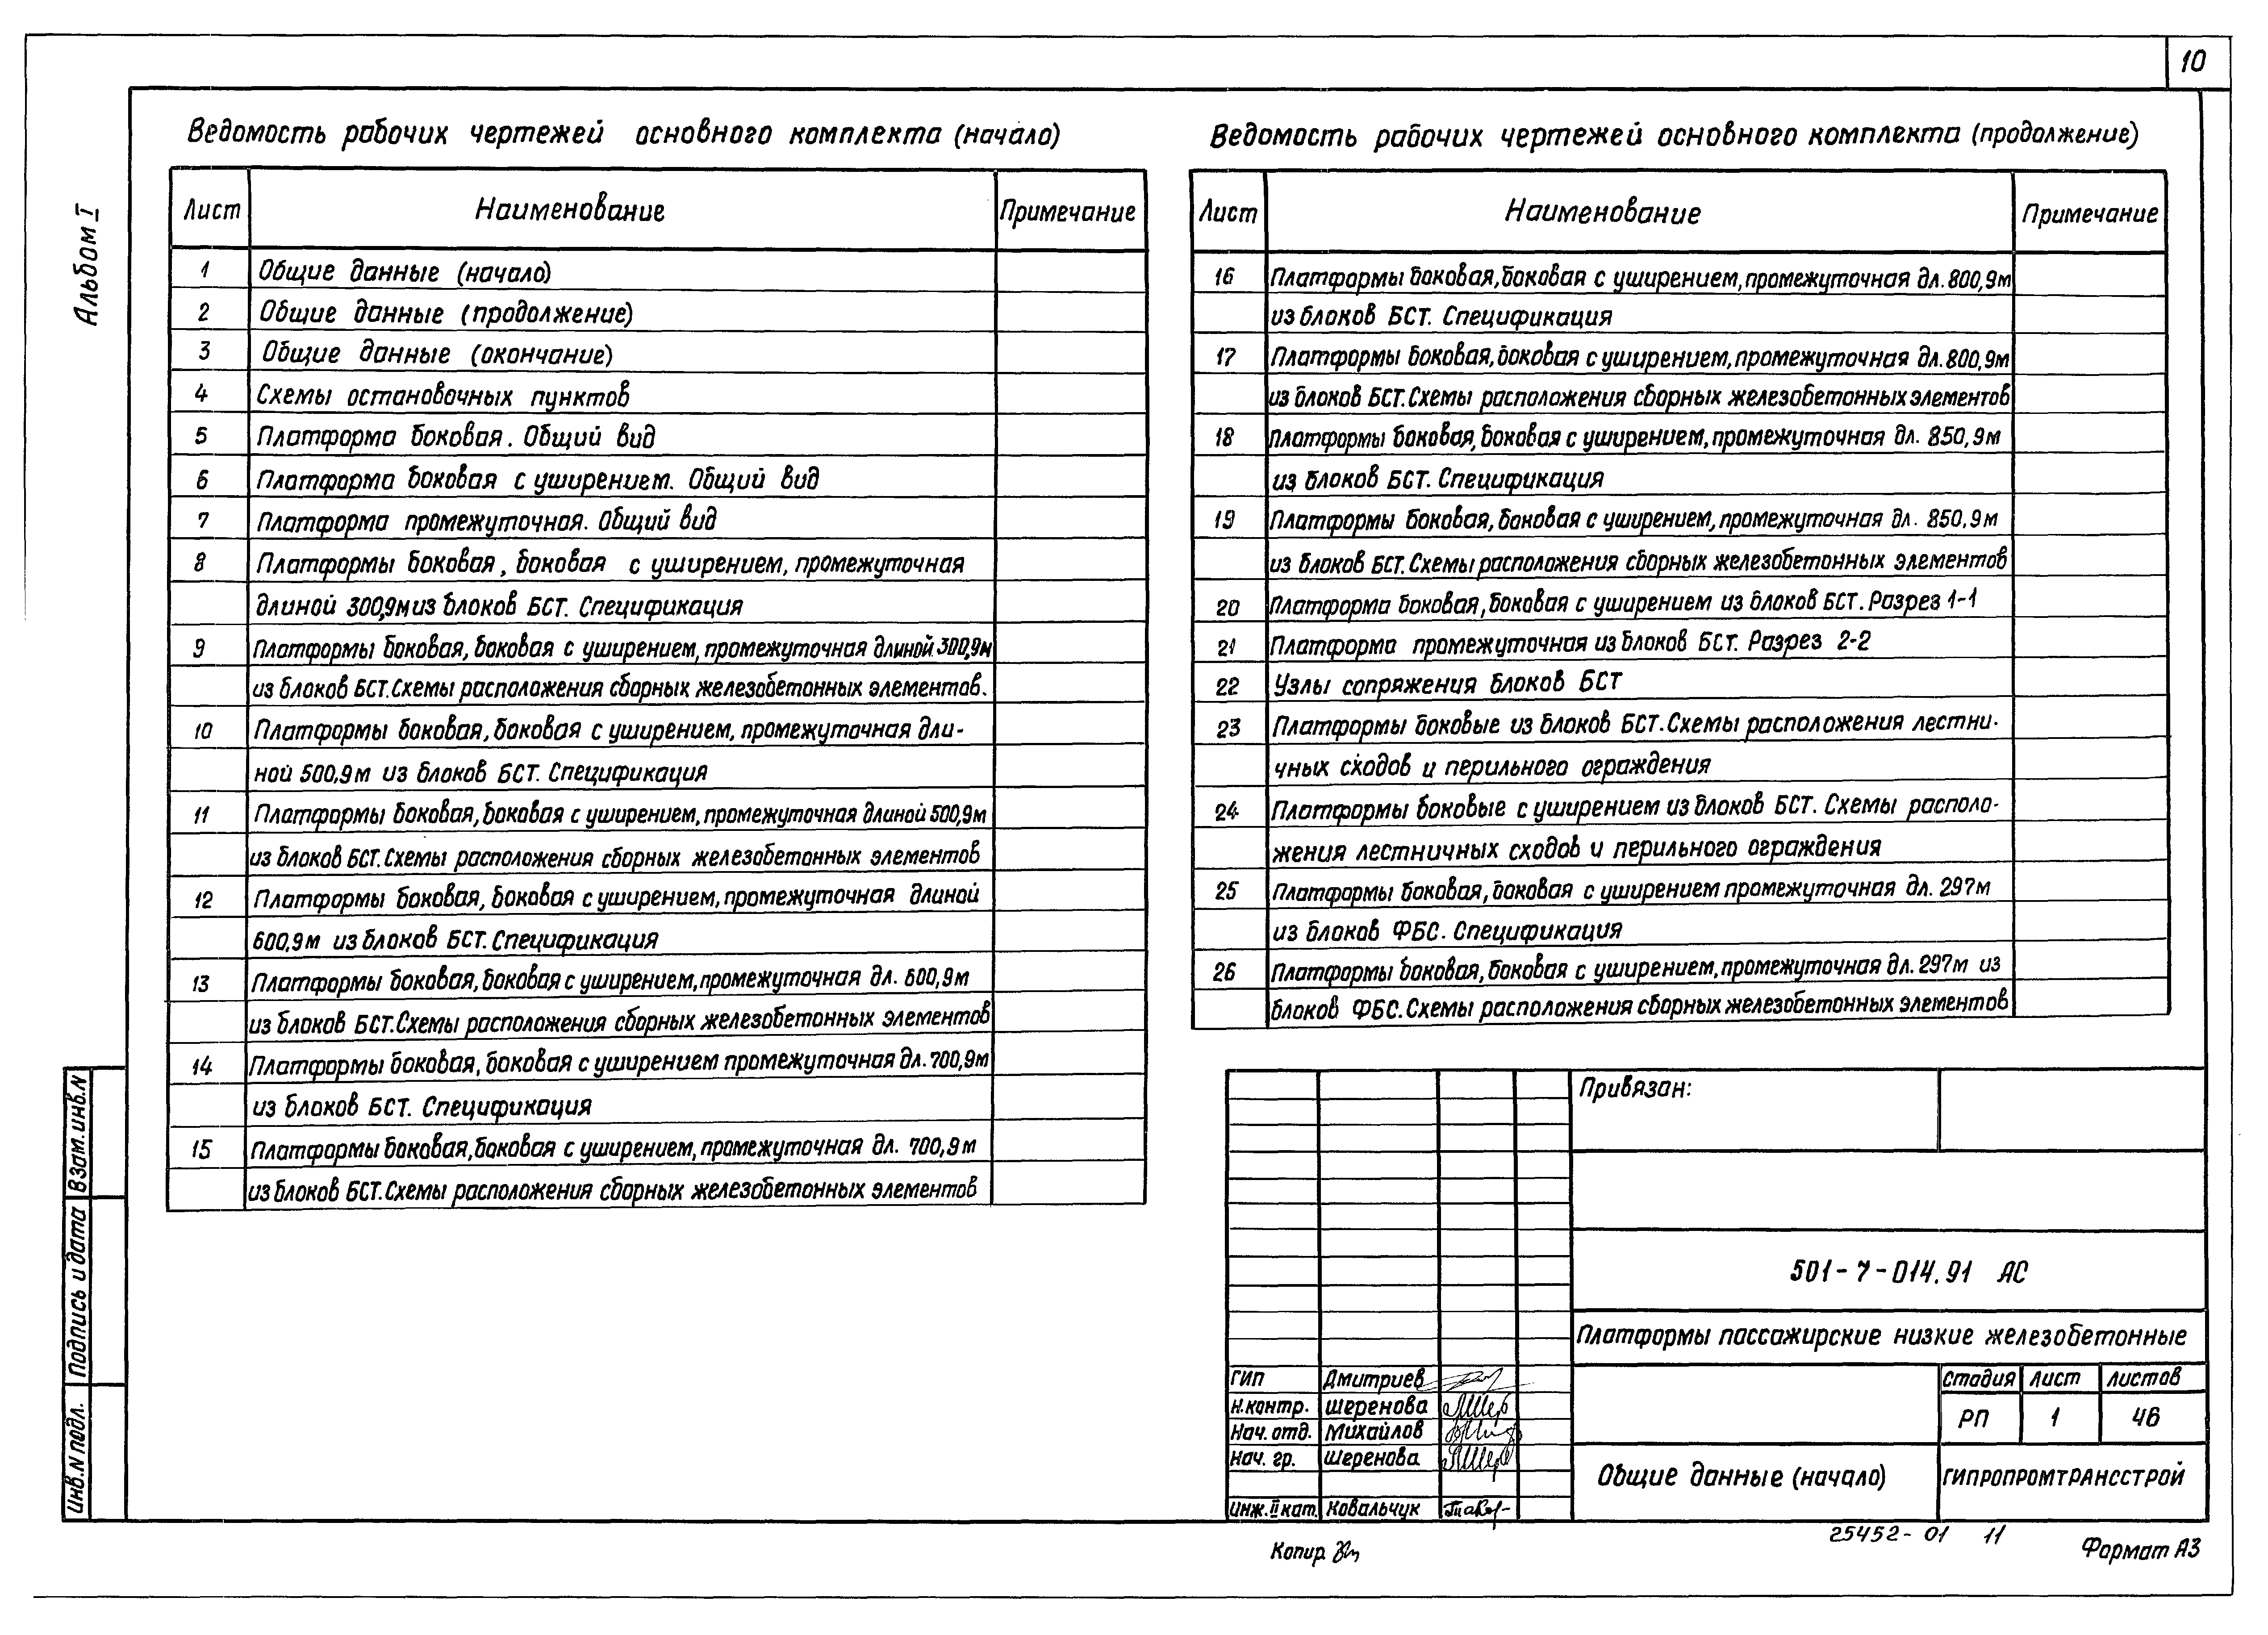 10
Альбом I
Ведомость рабочих чертежей основного комплекта (начало)
Лист Наименование Примечание
1 Общие данные (начало)
2 Общие данные (продолжение)
3 Общие данные (окончание)
4 Схемы остановочных пунктов
5 Платформа боковая. Общий вид
6 Платформа боковая с уширением. Общий вид
7 Платформа промежуточная. Общий вид
8 Платформы боковая, боковая с уширением, промежуточная
длиной 300,9м из блоков БСТ. Спецификация
9 Платформы боковая, боковая с уширением, промежуточная длиной 300,9м
из блоков БСТ. Схемы расположения сборных железобетонных элементов.
10 Платформы боковая, боковая с уширением, промежуточная дли-
ной 500,9м из блоков БСТ. Спецификация
11 Платформы боковая, боковая с уширением, промежуточная длиной 500,9м
из блоков БСТ. Схемы расположения сборных железобетонных элементов
12 Платформы боковая, боковая с уширением, промежуточная длиной
600,9м из блоков БСТ. Спецификация
13 Платформы боковая, боковая с уширением, промежуточная дл. 600,9м
из блоков БСТ. Схемы расположения сборных железобетонных элементов
14 Платформы боковая, боковая с уширением промежуточная дл. 700,9м
из блоков БСТ. Спецификация
15 Платформы боковая, боковая с уширением, промежуточная дл. 700,9м
из блоков БСТ. Схемы расположения сборных железобетонных элементов
Ведомость рабочих чертежей основного комплекта (продолжение)
Лист Наименование Примечание
16 Платформы боковая, боковая с уширением, промежуточная дл. 800,9м
из блоков БСТ. Спецификация
17 Платформы боковая, боковая с уширением, промежуточная дл. 800,9м
из блоков БСТ. Схемы расположения сборных железобетонных элементов
18 Платформы боковая, боковая с уширением, промежуточная дл. 850,9м
из блоков БСТ. Спецификация
19 Платформы боковая, боковая с уширением, промежуточная дл. 850,9м
из блоков БСТ. Схемы расположения сборных железобетонных элементов
20 Платформа боковая, боковая с уширением из блоков БСТ. Разрез 1-1
21 Платформа промежуточная из блоков БСТ. Разрез 2-2
22 Узлы сопряжения блоков БСТ
23 Платформы боковые из блоков БСТ. Схемы расположения лестни-
чных сходов и перильного ограждения
24 Платформы боковые с уширением из блоков БСТ. Схемы располо-
жения лестничных сходов и перильного ограждения
25 Платформы боковая, боковая с уширением промежуточная дл. 297м
из блоков ФБС. Спецификация
26 Платформы боковая, боковая с уширением, промежуточная дл. 297м из
блоков ФБС. Схемы расположения сборных железобетонных элементов
Привязан:
501-7-014.91 АС
Платформы пассажирские низкие железобетонные
ГИП Дмитриев
Н.контр. Шеренова
Нач. отд. Михайлов
Нач. гр. Шеренова
Инж. II кат. Ковальчук
Стадия Лист Листов
РП 1 46
Общие данные (начало)
ГИПРОПРОМТРАНССТРОЙ
Взам. инв. N
Подпись и дата
Инв. N подл.
Копир.
25452-01 11
Формат А3